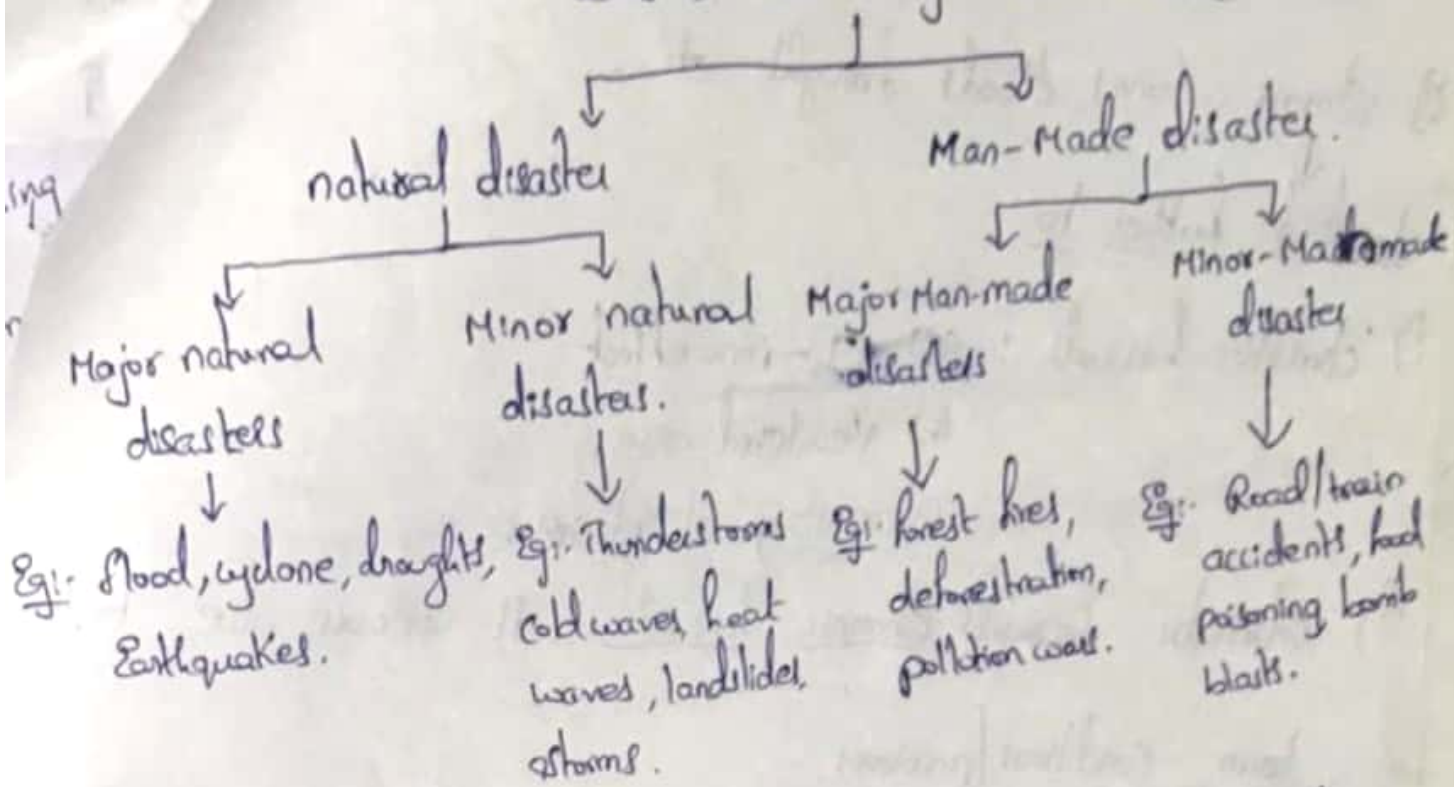 natural disaster
Man-Made disaster.
Major natural
disasters
Minor natural
disasters.
Major Man-made
disasters
Minor-Man made
disaster.
Eg:- flood, cyclone, draughts,
Earthquakes.
Eg:- Thunderstorms
cold waves, heat
waves, landslides,
storms.
Eg:- forest fires,
deforestration,
pollution wars.
Eg:- Road/train
accidents, food
poisoning bomb
blasts.